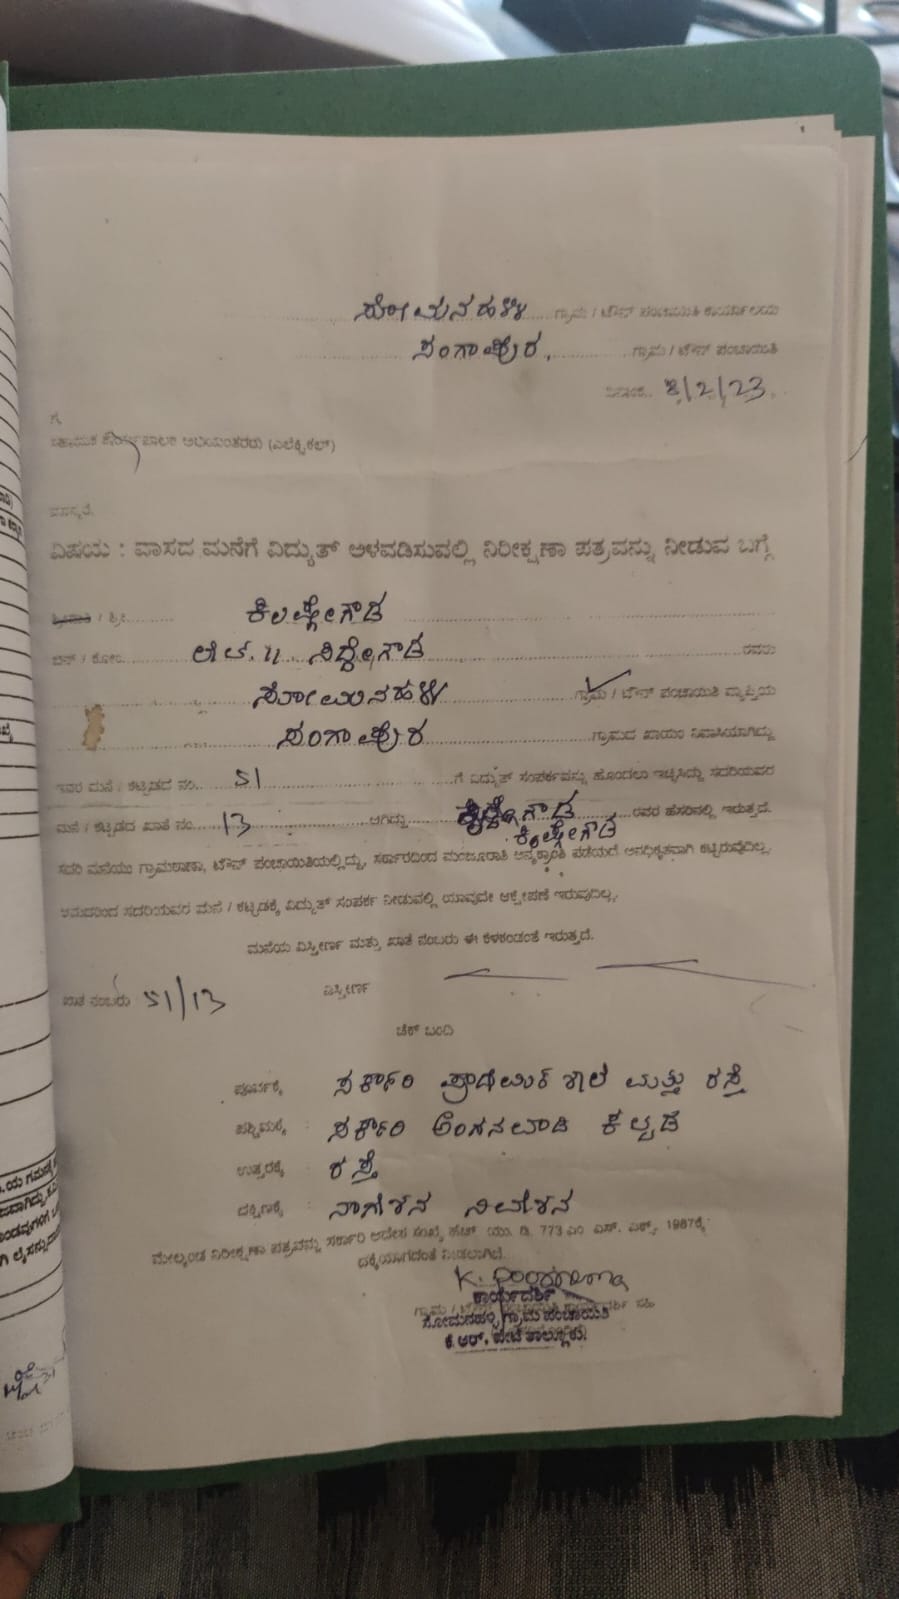 ಸೋಮನಹಳ್ಳಿ ಗ್ರಾಮ / ಟೌನ್ ಪಂಚಾಯಿತಿ ಕಾರ್ಯಾಲಯ
ಸಂಗಾಪುರ. ಗ್ರಾಮ / ಟೌನ್ ಪಂಚಾಯಿತಿ
ದಿನಾಂಕ. 8/2/23
ಗೆ,
ಸಹಾಯಕ ಕಾರ್ಯಪಾಲಕ ಅಭಿಯಂತರರು (ಎಲೆಕ್ಟ್ರಿಕಲ್)
ಮಾನ್ಯರೆ,
ವಿಷಯ : ವಾಸದ ಮನೆಗೆ ವಿದ್ಯುತ್ ಅಳವಡಿಸುವಲ್ಲಿ ನಿರೀಕ್ಷಣಾ ಪತ್ರವನ್ನು ನೀಡುವ ಬಗ್ಗೆ
ಶ್ರೀಮತಿ / ಶ್ರೀ
ಬಿನ್ / ಕೋಂ ಸಿದ್ದೇಗೌಡ ರವರು
ಸೋಮನಹಳ್ಳಿ ಗ್ರಾಮ / ಟೌನ್ ಪಂಚಾಯಿತಿ ವ್ಯಾಪ್ತಿಯ
ಸಂಗಾಪುರ ಗ್ರಾಮದ ಖಾಯಂ ನಿವಾಸಿಯಾಗಿದ್ದು
ಇವರ ಮನೆ / ಕಟ್ಟಡದ ನಂ. 51 ಗೆ ವಿದ್ಯುತ್ ಸಂಪರ್ಕವನ್ನು ಹೊಂದಲು ಇಚ್ಛಿಸಿದ್ದು ಸದರಿಯವರ
ಮನೆ / ಕಟ್ಟಡದ ಖಾತೆ ನಂ. 13 ಆಗಿದ್ದು ರವರ ಹೆಸರಿನಲ್ಲಿ ಇರುತ್ತದೆ.
ಸದರಿ ಮನೆಯು ಗ್ರಾಮಠಾಣಾ, ಟೌನ್ ಪಂಚಾಯಿತಿಯಲ್ಲಿದ್ದು, ಸರ್ಕಾರದಿಂದ ಮಂಜೂರಾತಿ ಅನ್ಯಕ್ರಾಂತಿ ಪಡೆಯದೆ ಅನಧಿಕೃತವಾಗಿ ಕಟ್ಟಿರುವುದಿಲ್ಲ.
ಆದುದರಿಂದ ಸದರಿಯವರ ಮನೆ / ಕಟ್ಟಡಕ್ಕೆ ವಿದ್ಯುತ್ ಸಂಪರ್ಕ ನೀಡುವಲ್ಲಿ ಯಾವುದೇ ಆಕ್ಷೇಪಣೆ ಇರುವುದಿಲ್ಲ.
ಮನೆಯ ವಿಸ್ತೀರ್ಣ ಮತ್ತು ಖಾತೆ ನಂಬರು ಈ ಕೆಳಕಂಡಂತೆ ಇರುತ್ತದೆ.
ಖಾತೆ ನಂಬರು 51/13 ವಿಸ್ತೀರ್ಣ
ಚೆಕ್ ಬಂದಿ
ಪೂರ್ವಕ್ಕೆ : ಸರ್ಕಾರಿ ಪ್ರಾಥಮಿಕ ಶಾಲೆ ಮತ್ತು ರಸ್ತೆ
ಪಶ್ಚಿಮಕ್ಕೆ : ಸರ್ಕಾರಿ ಅಂಗನವಾಡಿ ಕಟ್ಟಡ
ಉತ್ತರಕ್ಕೆ : ರಸ್ತೆ
ದಕ್ಷಿಣಕ್ಕೆ : ನಾಗೇಶನ ನಿವೇಶನ
ಮೇಲ್ಕಂಡ ನಿರೀಕ್ಷಣಾ ಪತ್ರವನ್ನು ಸರ್ಕಾರಿ ಆದೇಶ ಸಂಖ್ಯೆ ಹೆಚ್. ಯು. ಡಿ. 773 ಎಂ. ಎನ್. ಎಕ್ಸ್. 1987ಕ್ಕೆ
ದಕ್ಕೆಯಾಗದಂತೆ ನೀಡಲಾಗಿದೆ.
ಕಾರ್ಯದರ್ಶಿ
ಸೋಮನಹಳ್ಳಿ ಗ್ರಾಮ ಪಂಚಾಯಿತಿ
ಕೆ.ಆರ್. ಪೇಟೆ ತಾಲ್ಲೂಕು